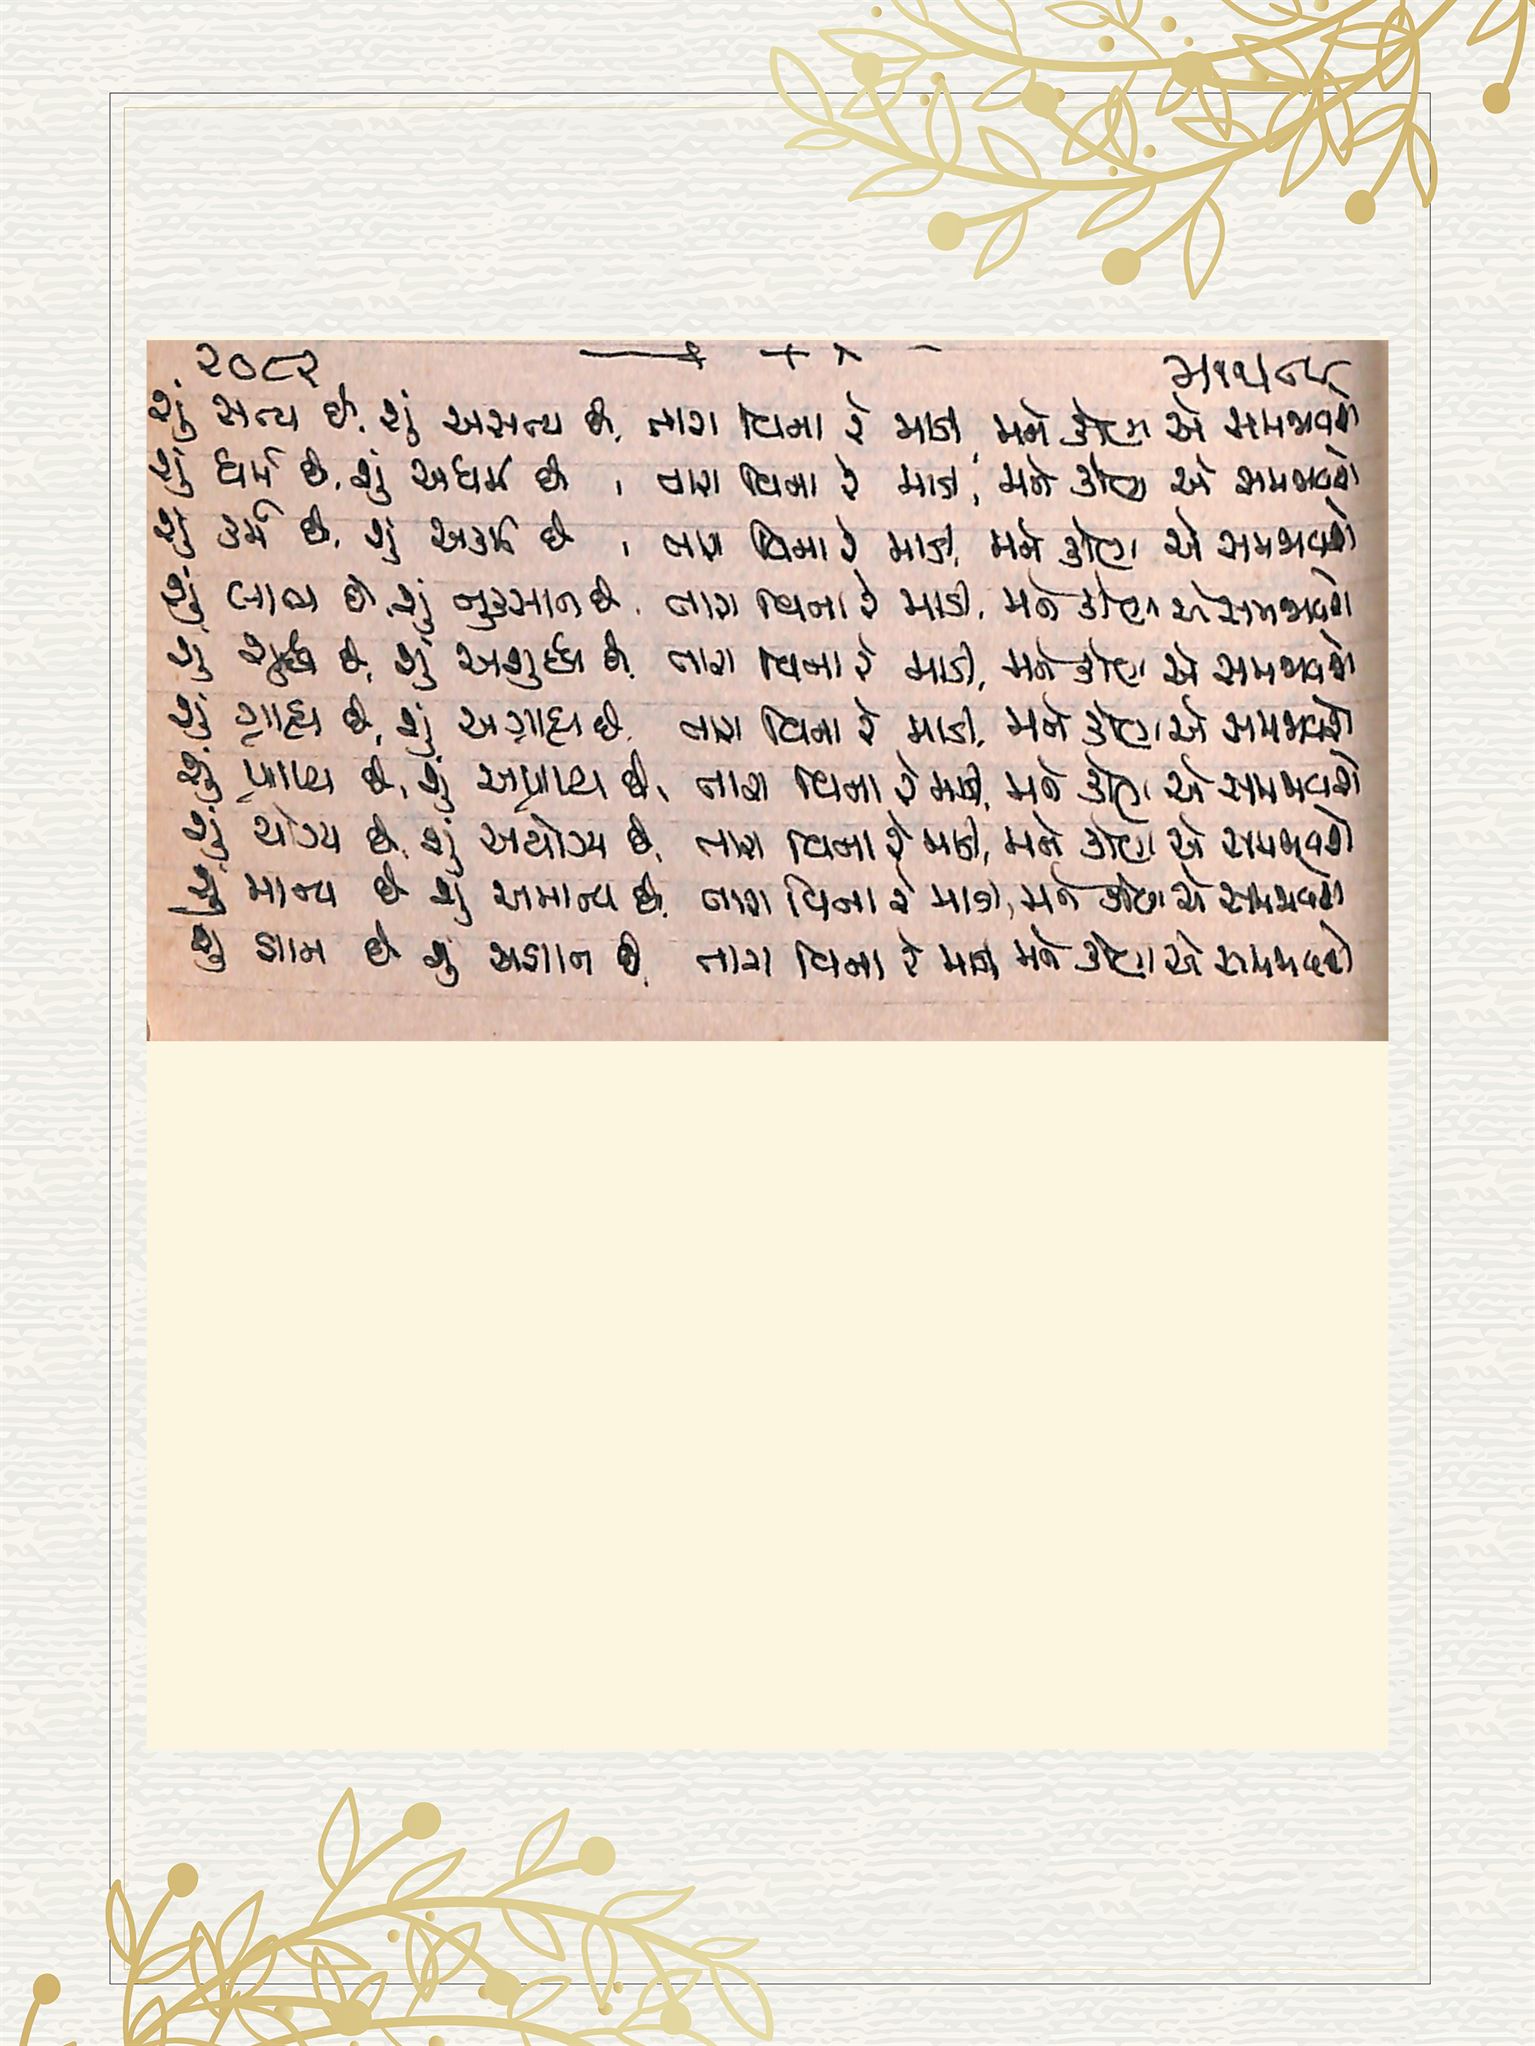 ૨૦૮૨
શું સત્ય છે, શું અસત્ય છે, તારા વિના રે માડી, મને કોણ એ સમજાવશે
શું ધર્મ છે, શું અધર્મ છે, તારા વિના રે માડી, મને કોણ એ સમજાવશે
શું કર્મ છે, શું અકર્મ છે, તારા વિના રે માડી, મને કોણ એ સમજાવશે
શું લાભ છે, શું નુકસાન છે, તારા વિના રે માડી, મને કોણ એ સમજાવશે
શું શુદ્ધ છે, શું અશુદ્ધ છે, તારા વિના રે માડી, મને કોણ એ સમજાવશે
શું ગ્રાહ્ય છે, શું અગ્રાહ્ય છે, તારા વિના રે માડી, મને કોણ એ સમજાવશે
શું પ્રાપ્ય છે, શું અપ્રાપ્ય છે, તારા વિના રે માડી, મને કોણ એ સમજાવશે
શું યોગ્ય છે, શું અયોગ્ય છે, તારા વિના રે માડી, મને કોણ એ સમજાવશે
શું માન્ય છે શું અમાન્ય છે, તારા વિના રે માડી, મને કોણ એ સમજાવશે
શું જ્ઞાન છે શું અજ્ઞાન છે, તારા વિના રે માડી મને કોણ એ સમજાવશે